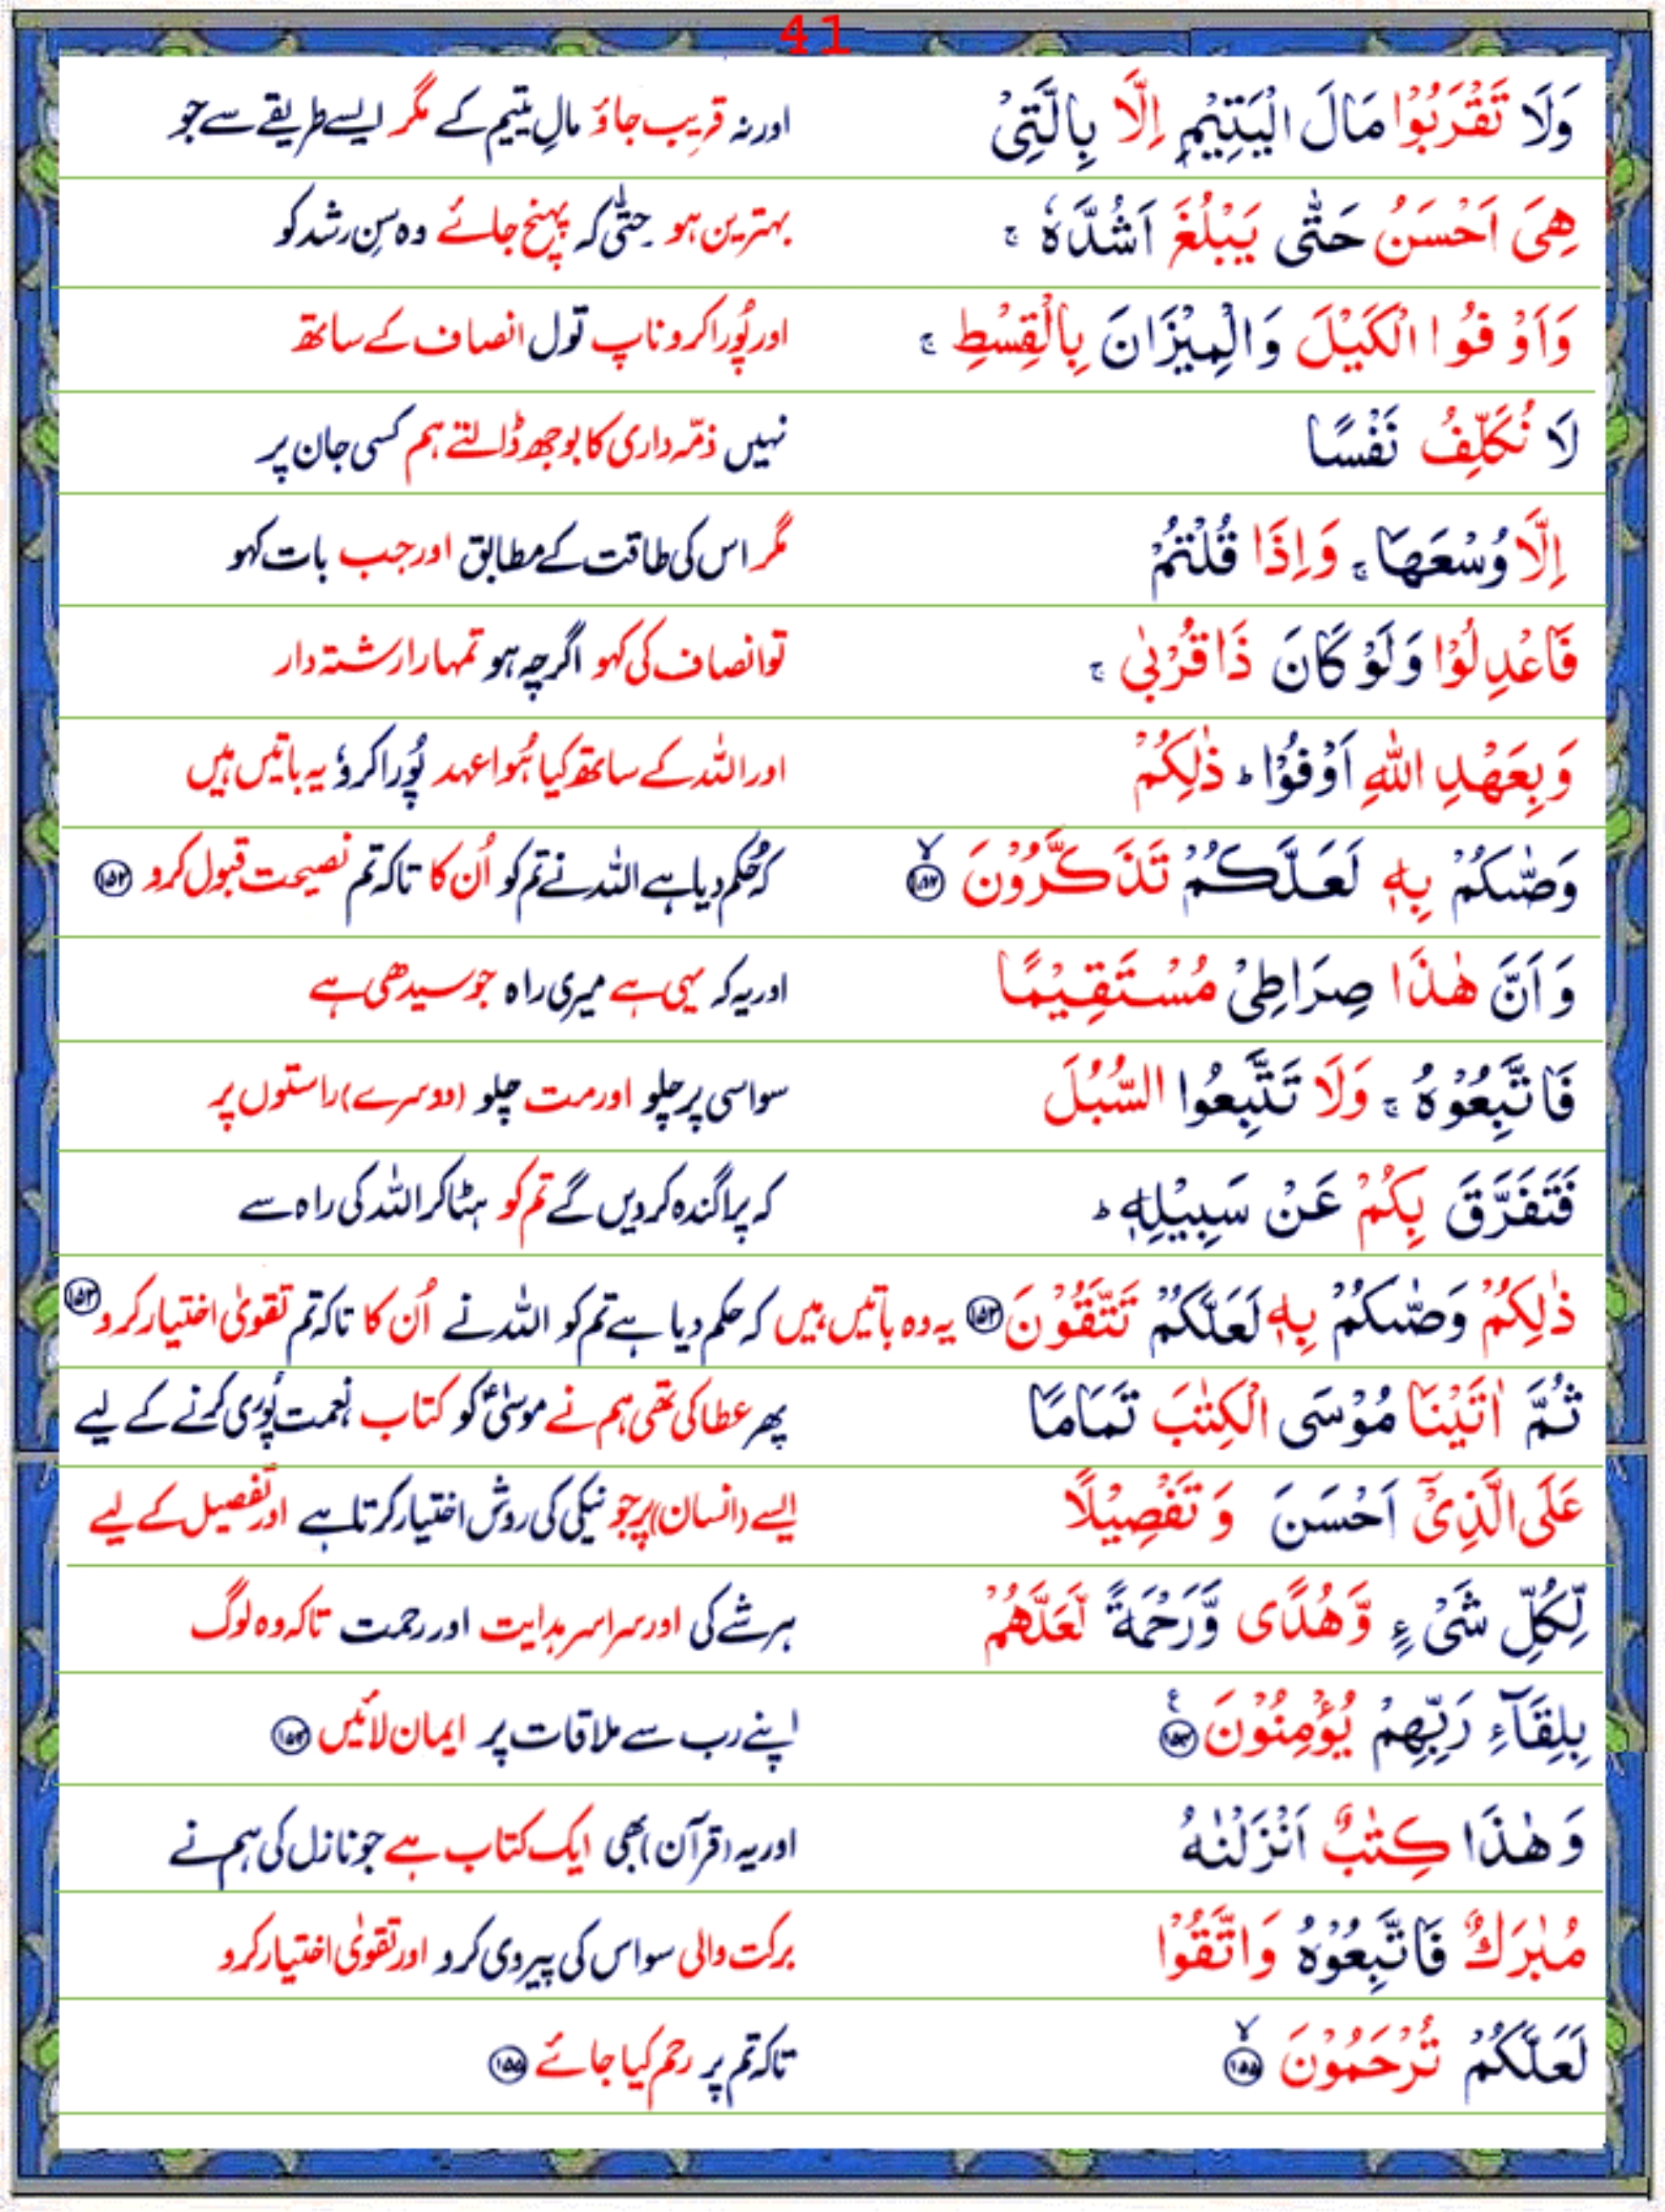 41
وَلَا تَقْرَبُوْا مَالَ الْيَتِيْمِ اِلَّا بِالَّتِیْ اور نہ قریب جاؤ مالِ یتیم کے مگر ایسے طریقے سے جو
هِیَ اَحْسَنُ حَتّٰی يَبْلُغَ اَشُدَّهٗ ۚ بہترین ہو حتّٰی کہ پہنچ جائے وہ سِن رشد کو
وَاَوْفُوا الْكَيْلَ وَالْمِيْزَانَ بِالْقِسْطِ ۚ اور پُورا کرو ناپ تول انصاف کے ساتھ
لَا نُكَلِّفُ نَفْسًا نہیں ذمّہ داری کا بوجھ ڈالتے ہم کسی جان پر
اِلَّا وُسْعَهَا ۚ وَاِذَا قُلْتُمْ مگر اس کی طاقت کے مطابق اور جب بات کہو
فَاعْدِلُوْا وَلَوْ كَانَ ذَا قُرْبٰی ۚ تو انصاف کی کہو اگرچہ ہو تمہارا رشتہ دار
وَبِعَهْدِ اللّٰهِ اَوْفُوْا ؕ ذٰلِكُمْ اور اللہ کے ساتھ کیا ہُوا عہد پُورا کرو یہ باتیں ہیں
وَصّٰىكُمْ بِهٖ لَعَلَّكُمْ تَذَكَّرُوْنَ ۙ﴿۱۵۲﴾ کہ حُکم دیا ہے اللہ نے تم کو اُن کا تاکہ تم نصیحت قبول کرو ﴿۱۵۲﴾
وَاَنَّ هٰذَا صِرَاطِیْ مُسْتَقِيْمًا اور یہ کہ یہی ہے میری راہ جو سیدھی ہے
فَاتَّبِعُوْهُ ۚ وَلَا تَتَّبِعُوا السُّبُلَ سو اسی پر چلو اور مت چلو (دوسرے) راستوں پر
فَتَفَرَّقَ بِكُمْ عَنْ سَبِيْلِهٖ ؕ کہ پراگندہ کردیں گے تم کو ہٹا کر اللہ کی راہ سے
ذٰلِكُمْ وَصّٰىكُمْ بِهٖ لَعَلَّكُمْ تَتَّقُوْنَ ﴿۱۵۳﴾ یہ وہ باتیں ہیں کہ حکم دیا ہے تم کو اللہ نے اُن کا تاکہ تم تقویٰ اختیار کرو ﴿۱۵۳﴾
ثُمَّ اٰتَيْنَا مُوْسَی الْكِتٰبَ تَمَامًا پھر عطا کی تھی ہم نے موسیٰؑ کو کتاب نعمت پُوری کرنے کے لیے
عَلَی الَّذِیْۤ اَحْسَنَ وَتَفْصِيْلًا ایسے (انسان) پر جو نیکی کی روش اختیار کرتا ہے اور تفصیل کے لیے
لِّكُلِّ شَیْءٍ وَّهُدًى وَّرَحْمَةً لَّعَلَّهُمْ ہر شے کی اور سراسر ہدایت اور رحمت تاکہ وہ لوگ
بِلِقَآءِ رَبِّهِمْ يُؤْمِنُوْنَ ﴿۱۵۴﴾ۧ اپنے رب سے ملاقات پر ایمان لائیں ﴿۱۵۴﴾
وَهٰذَا كِتٰبٌ اَنْزَلْنٰهُ اور یہ (قرآن) بھی ایک کتاب ہے جو نازل کی ہم نے
مُبٰرَكٌ فَاتَّبِعُوْهُ وَاتَّقُوْا برکت والی سو اس کی پیروی کرو اور تقویٰ اختیار کرو
لَعَلَّكُمْ تُرْحَمُوْنَ ۙ﴿۱۵۵﴾ تاکہ تم پر رحم کیا جائے ﴿۱۵۵﴾